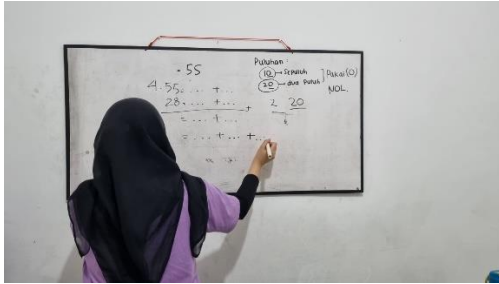 . 55
4. 55 = .... + ...
28 = .... + ... +
= .... + ...
= .... + ... + ...
Puluhan :
10 → Sepuluh
20 → dua Puluh
} Pakai (0)
NOL.
2 20